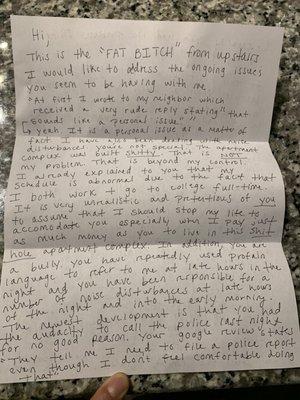 Hi,
This is the "FAT BITCH" from upstairs
I would like to address the ongoing issues
you seem to be having with me.
"At first I wrote to my neighbor which
received a very rude reply stating "that
sounds like a personal issue""
↳ yeah it is a personal issue as a matter of
fact I have also been dealing with noise
disturbances. You're not special. The apartment
complex was built shitty. That is NOT
my problem. That is beyond my control.
I already explained to you that my
schedule is abnormal due to the fact that
I both work & go to college full-time
It is very unrealistic and pretentious of you
to assume that I should stop my life to
accomodate you especially when I pay just
as much money as you to live in this shit
hole apartment complex. In addition, you are
a bully. you have repeatedly used profain
language to refer to me at late hours in the
night and you have been responsible for a
number of noise disturbances at late hours
of the night and into the early morning.
The newest development is that you had
the audacity to call the police last night
for no good reason. Your google review states
"They tell me I need to file a police report
even though I don't feel comfortable doing
that"